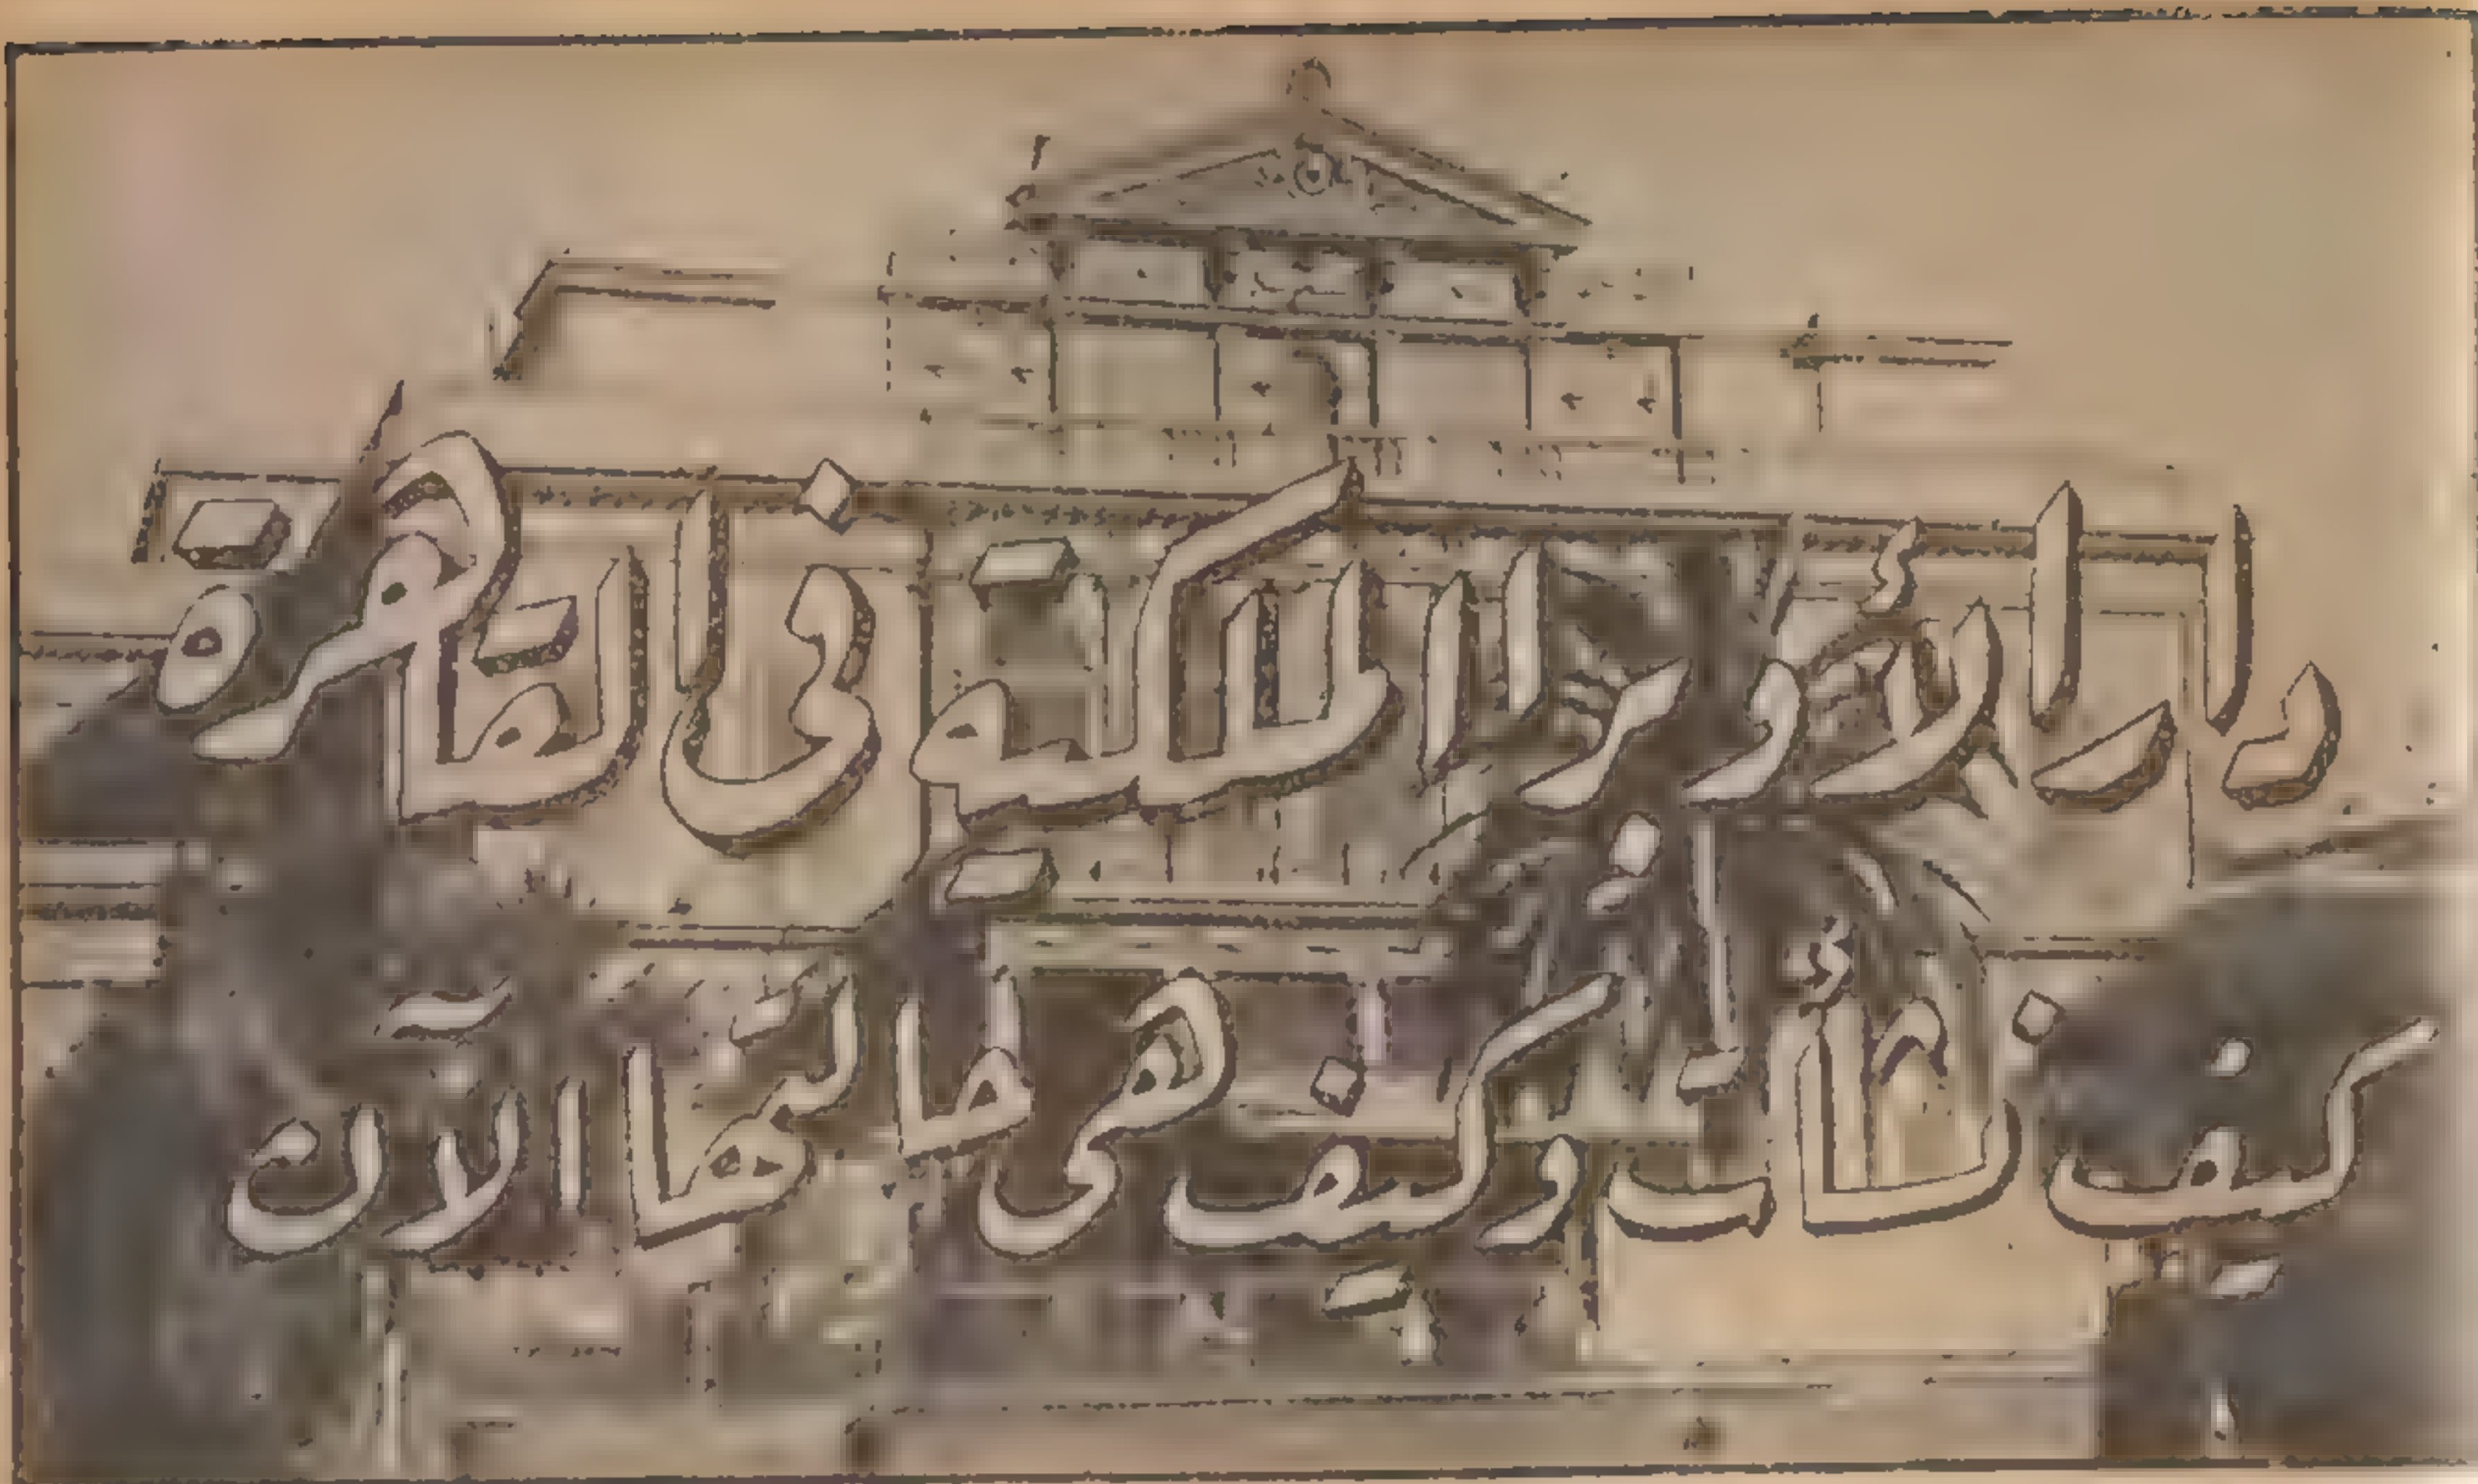 دار الأوبرا الملكية فى القاهرة
كيف نشأت وكيف هى حالتها الآن